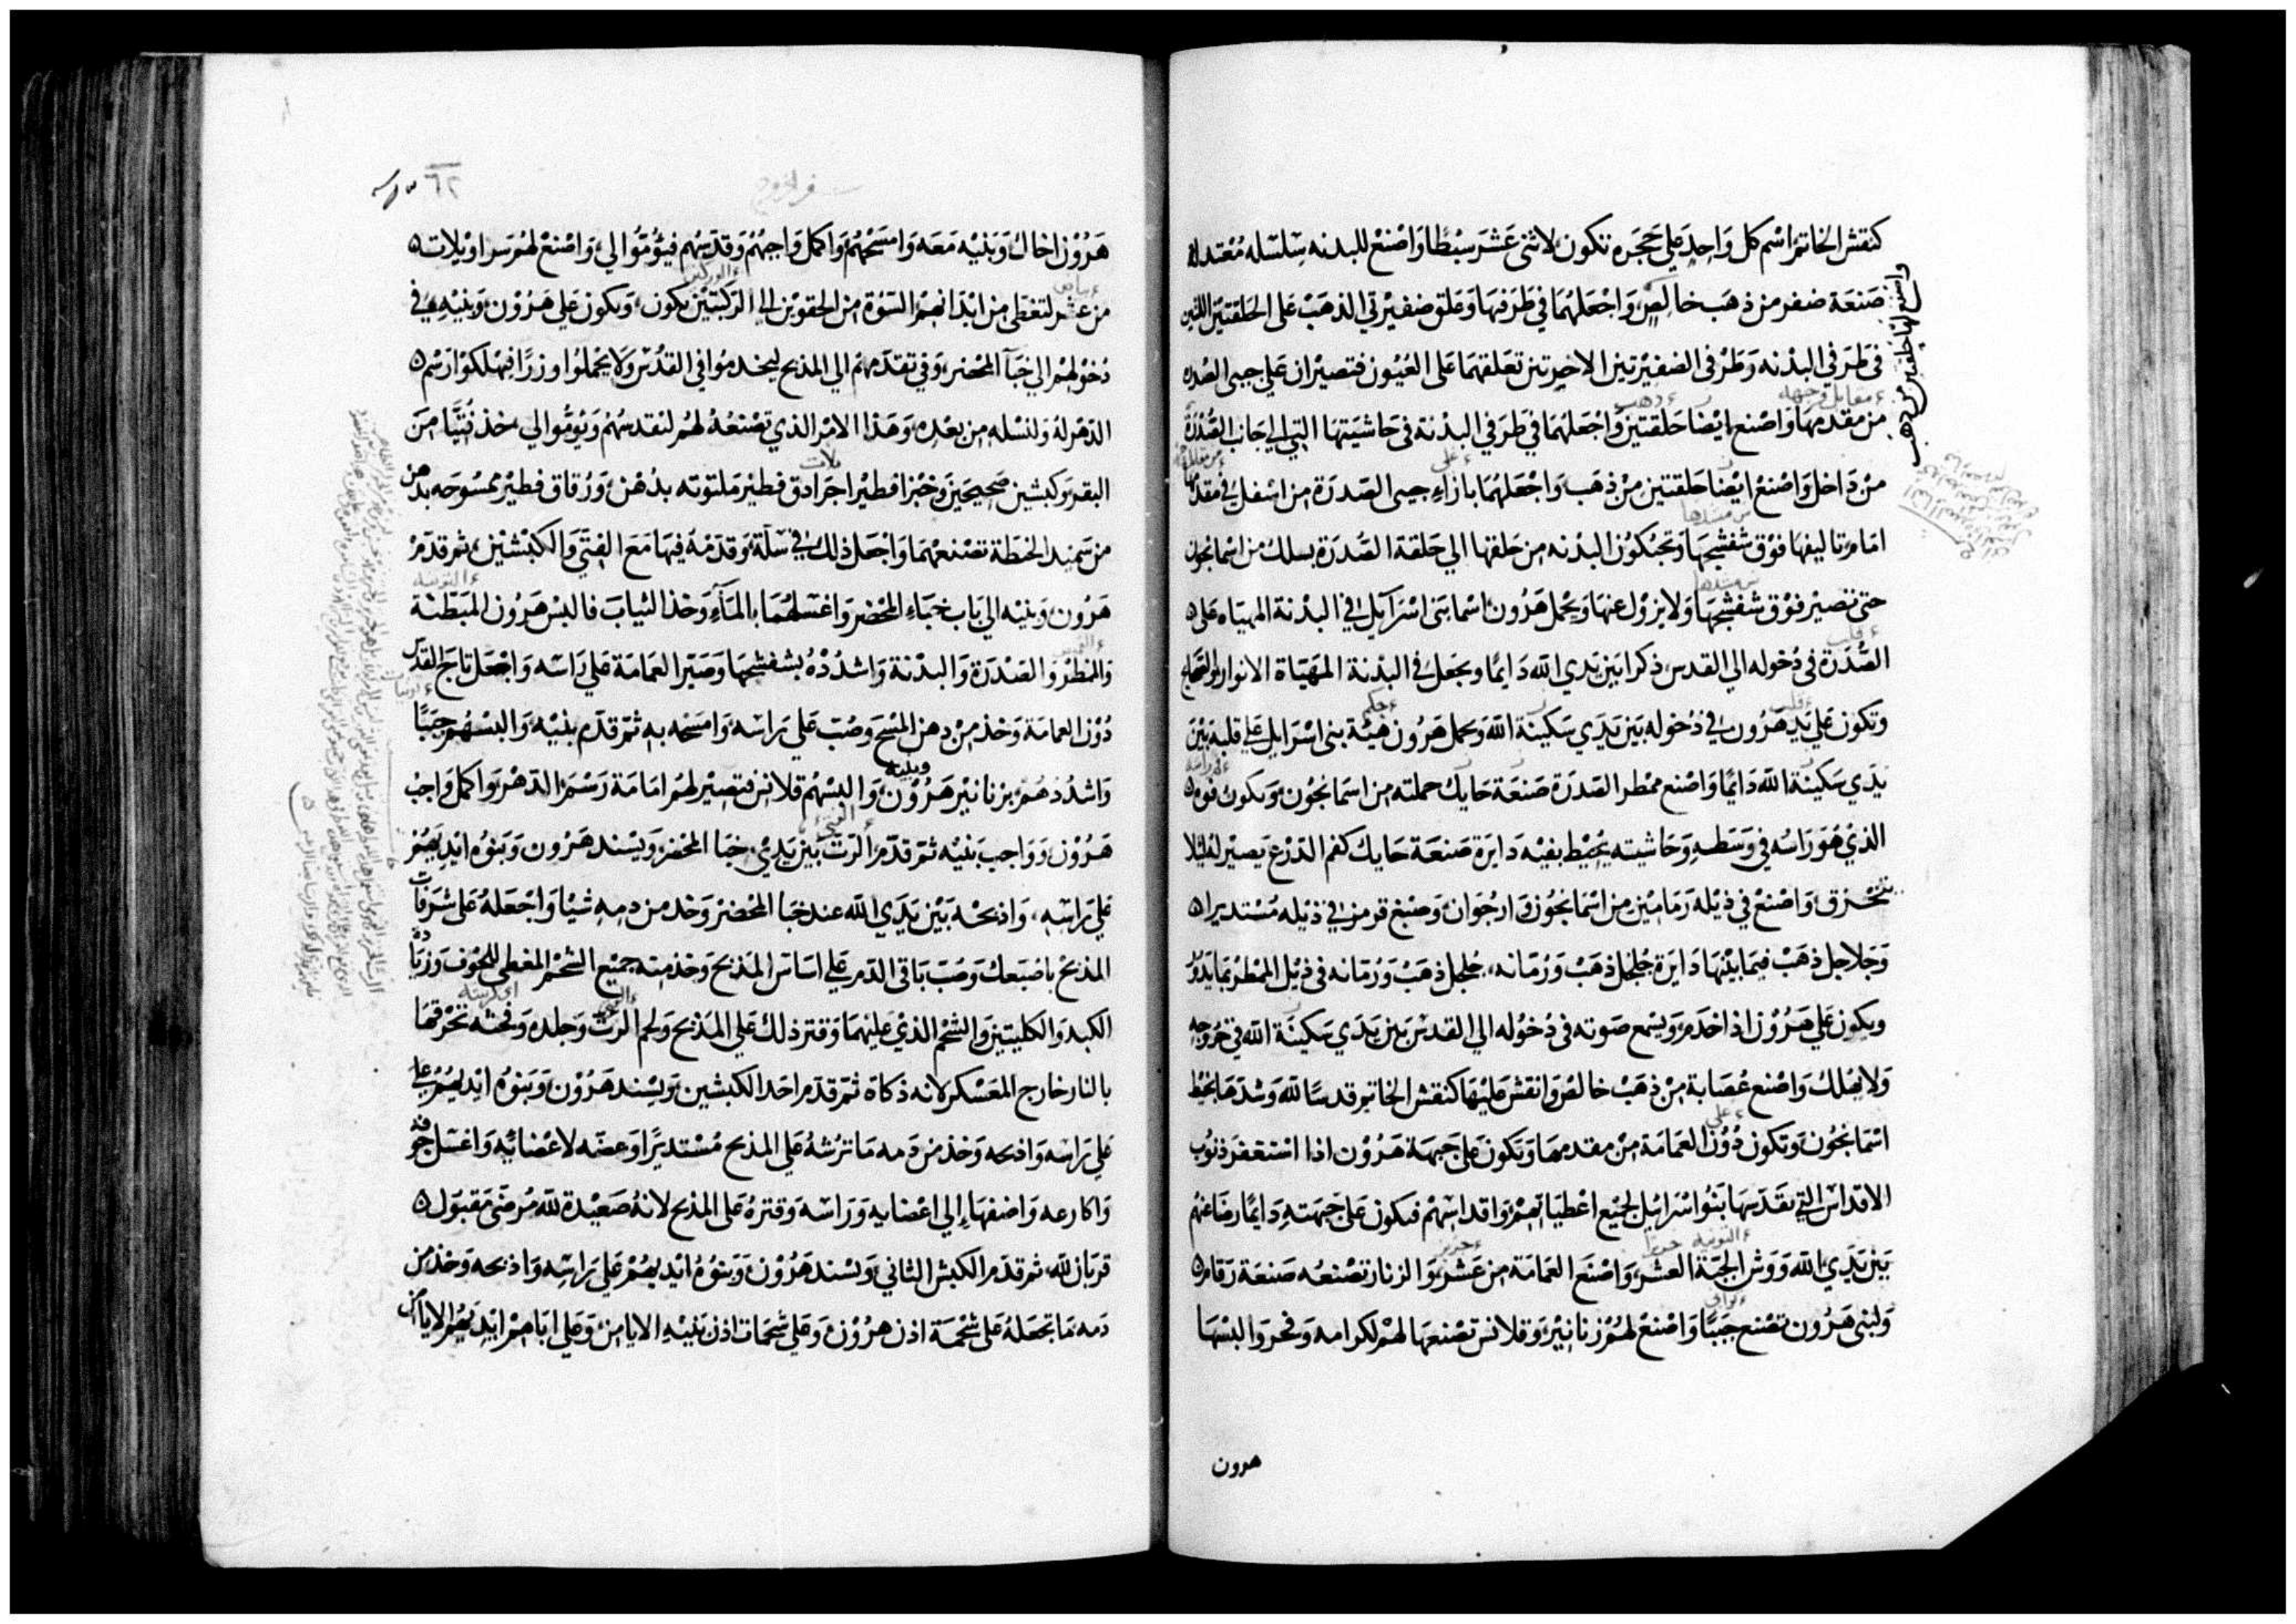 كنقش الخاتم اسم كل واحد علي حجره تكون لاثنى عشر سبطا واصنع للبدنه سلسله معتدله
صنعة ضفر من ذهب خالص واجعلهما في طرفها وعلق ضفيرتي الذهب على الحلقتين اللتين
واصنع لها حلقتين من ذهب
في طرفي البدنه وطرفى الضفيرتين الاخيرتين تعلقهما على العيون فتصيران علي جيبى الصدره
مقابل وجهه ذهب
من مقدمها واصنع ايضا حلقتين واجعلهما في طرفي البدنة فى حاشيتها التي الي جانب الصدرة
من داخل واصنع ايضا حلقتين من ذهب واجعلهما بازاء جيبى الصدرة من اسفل في مقدمها
امام تاليفها فوق شفشجها وتحبكون البدنه من حلقها الي حلقة الصدرة بسلك من اسمانجون
حتى تصير فوق شفشجها ولا يزول عنها ويحمل هرون اسما بنى اسرآيل في البدنة المهياه على
الصدرة فى دخوله الي القدس ذكرا بين يدي الله دايما ويجعل في البدنة المهياة الانوار والصحاح
وتكون علي يد هرون في دخوله بين يدي سكينة الله ويحمل هرون هيئة بنى اسرايل علي قلبه بين
يدي سكينة الله دايما واصنع ممطر الصدرة صنعة حايك حملته من اسمانجون ويكون فوه
الذي هو راسه في وسطه وحاشيته يحيط بفيه دايرة صنعة حايك كفم الدرع يصير له ليلا
يتخرق واصنع في ذيله رمامين من اسمانجون وارجوان وصبغ قرمز في ذيله مستديرا
وجلاجل ذهب فيما بينها دايرة جلجل ذهب ورمانه، جلجل ذهب ورمانه فى ذيل الممطر بما يدور
ويكون علي هرون اذا خدم ويسمع صوته فى دخوله الي القدس بين يدي سكينة الله في خروجه
ولا يهلك واصنع عصابة من ذهب خالص وانقش عليها كنقش الخاتم قدسا لله وشدها بخيط
اسمانجون وتكون دون العمامة من مقدمها وتكون على جبهة هرون اذا استغفر ذنوب
الاقداس التي يقدسها بنوا اسرائيل لجميع اعطياتهم واقداسهم فتكون على جبهته دايما رضا عنهم
التونيه حرير
بين يدي الله ووش الجبة العشر واصنع العمامة من عشر والزنار تصنعه صنعة رقام
ولبنى هرون تصنع جببا واصنع لهم زنانير وقلانس تصنعها لهم لكرامه وفخر والبسها
هرون
سفر الخروج
٦٢
هرون اخاك وبنيه معه وامسحهم واكمل واجبهم وقدسهم فيؤموا لي، واصنع لهم سراويلات
من عشر لتغطى من ابدانهم السوة من الحقوين الي الركبتين يكون، ويكون علي هرون وبنيه في
دخولهم الي خبآ المحضر وفي تقدمهم الي المذبح ليخدموا في القدس ولا يحملوا وزرا فيهلكوا رسم
الدهر له ولنسله من بعده وهذا الامر الذي تصنعه لهم لتقدسهم ويؤموا لي، خذ فتيا من
البقر وكبشين صحيحين وخبزا فطيرا جرادق فطير ملتوته بدهن، ورقاق فطير ممسوحه بدهن
من سميد الحنطة تصنعهما واجعل ذلك في سلة وقدمه فيها مع الفتي والكبشين، ثم قدم
التونيه
هرون وبنيه الي باب خباء المحضر واغسلهما بالمآء وخذ الثياب فالبس هرون المبطنة
والممطر والصدرة والبدنة واشدده بشفشجها وصير العمامة علي راسه واجعل تاج القدس
دون العمامة وخذ من دهن المسح وصب علي راسه وامسحه به ثم قدم بنيه والبسهم جببا
واشددهم بزنانير هرون وبنيه والبسهم قلانس فتصير لهم امامة رسم الدهر واكمل واجب
هرون وواجب بنيه ثم قدم الرت بين يدي خبا المحضر ويسند هرون وبنوه ايديهم
علي راسه، واذبحه بين يدي الله عند خبا المحضر وخذ من دمه شيا واجعله على شرفات
المذبح باصبعك وصب باقى الدم علي اساس المذبح وخذ منه جميع الشحم المغطي للجوف وزيادة
الكبد والكليتين والشحم الذي عليهما وقتر ذلك علي المذبح ولحم الرت وجلده وفرثه تحرقها
بالنار خارج المعسكر لانه ذكاة ثم قدم احد الكبشين ويسند هرون وبنوه ايديهم علي
علي راسه واذبحه وخذ من دمه ما ترشه علي المذبح مستديرا وعضه لاعضائه واغسل جوفه
واكارعه واضفها الي اعضايه وراسه وقتره على المذبح لانه صعيدة لله مرضى مقبول
قربان لله، ثم قدم الكبش الثاني ويسند هرون وبنوه ايديهم علي راسه واذبحه وخذ من
دمه ما تجعله على شحمة اذن هرون وعلي شحمات اذن بنيه الايامن وعلي اباهم ايديهم الايامن